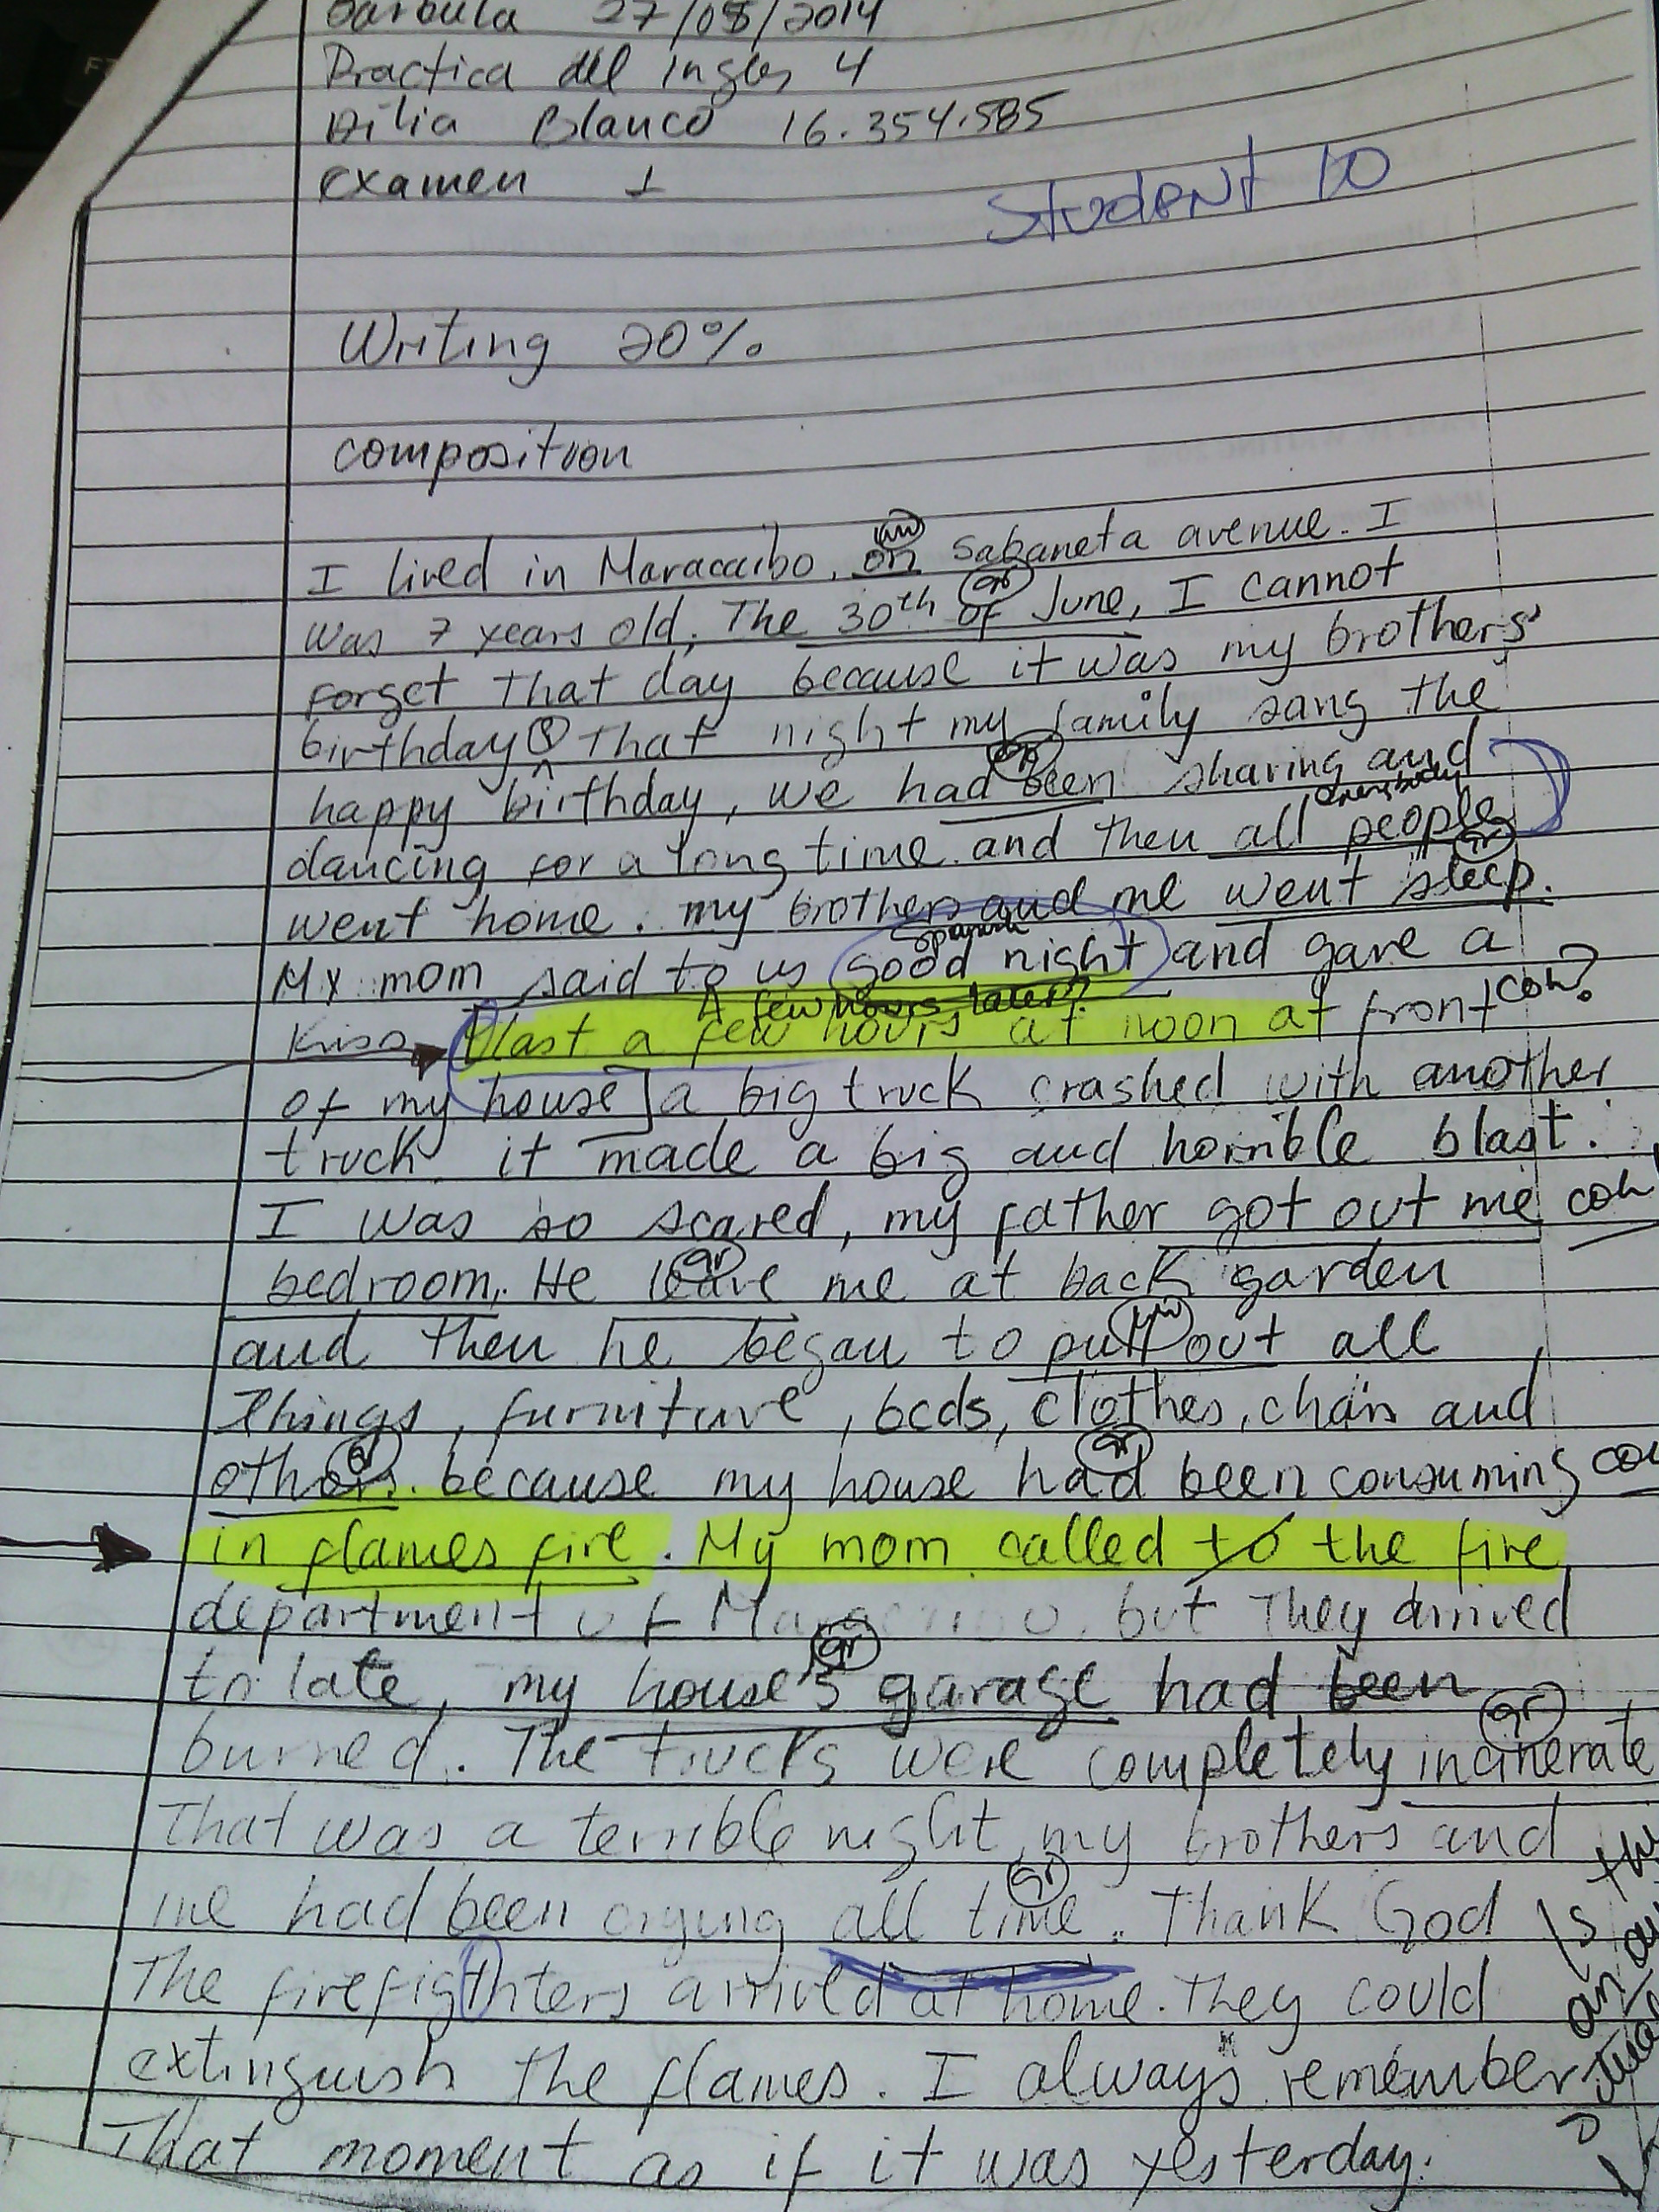 Barbula 27/05/2014
Practica del Ingles 4
Dilia Blanco 16.354.585
Examen 1
Student 10
Writing 20%
composition
I lived in Maracaibo, on Sabaneta avenue. I
was 7 years old. The 30th of June, I cannot
gr
forget that day because it was my brothers'
birthday that night my family sang the
happy birthday, we had been sharing and
everybody
dancing for a long time and then all people
gr
went home. my brothers and me went sleep.
My mom said to us good night and gave a
A few hours later?
Kiss last a few hours at noon at front coh?
of my house a big truck crashed with another
truck it made a big and horrible blast.
I was so scared, my father got out me coh
gr
bedroom. He leave me at back garden
and then he began to pull out all
Things, furniture, beds, clothes, chais and
gr
others. because my house had been consuming
in flames fire. My mom called to the fire
department of but They arrived
gr
to late, my house's garage had been
gr
burned. The trucks were completely incinerate
That was a terrible night, my brothers and
gr
me had been crying all time. Thank God
The firefigthters arrived at home. They could
extinguish the flames. I always remember
That moment as if it was yesterday.
Is
an